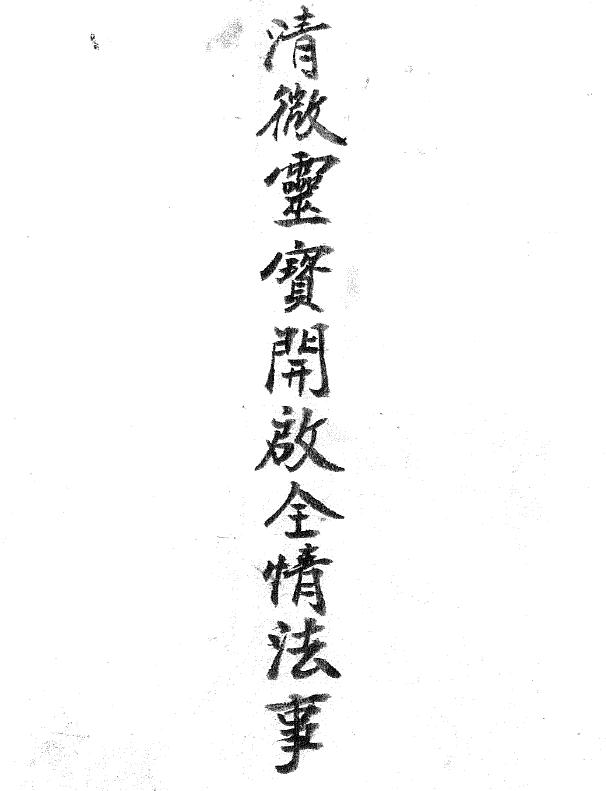 清微靈寶開啟全情法事